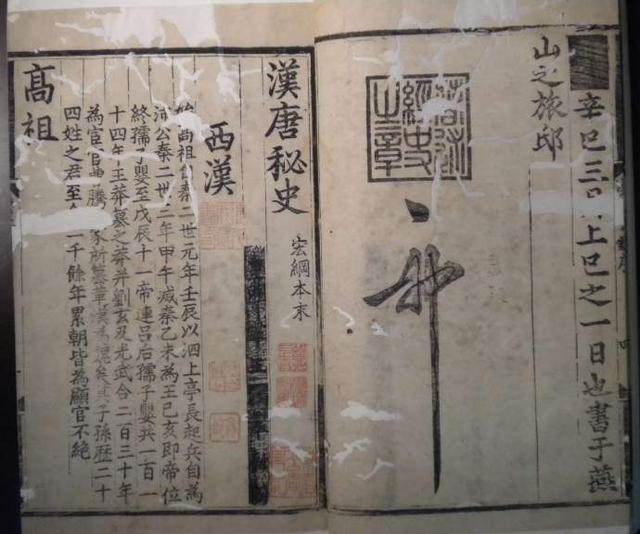 辛巳三月上巳之一日也書于燕
山之旅邸
經史之章
漢唐秘史
宏綱本末
西漢
始高祖自秦二世元年壬辰以泗上亭長起兵自為
沛公秦二世三年甲午滅秦乙未為王巳亥即帝位
終孺子嬰至戊辰十一帝連呂后孺子嬰共一百一
十四年王莽篡之莽并劉玄及光武合二百三十年
為宦官曹騰家所篡矣其子孫歷二十
四姓之君至一千餘年累朝皆為顯官不絕
高祖